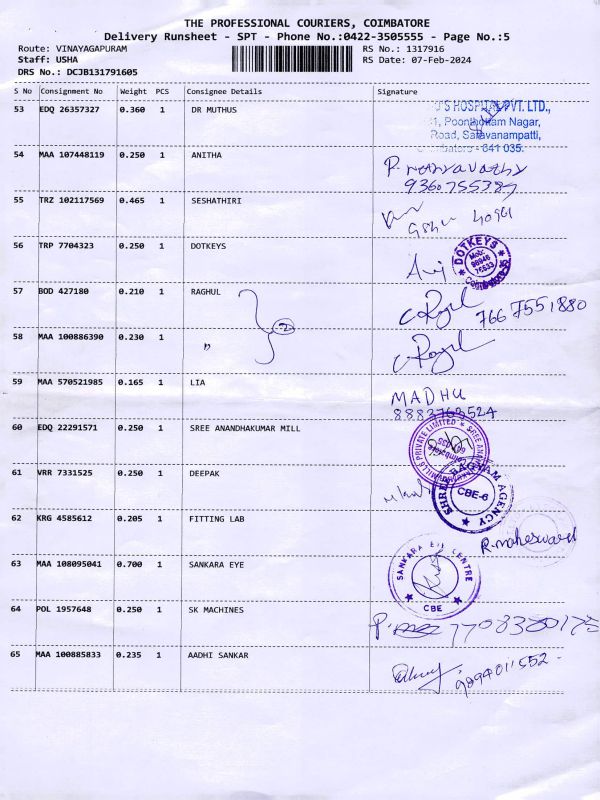 THE PROFESSIONAL COURIERS, COIMBATORE
Delivery Runsheet - SPT - Phone No.:0422-3505555 - Page No.:5
Route: VINAYAGAPURAM RS No.: 1317916
Staff: USHA RS Date: 07-Feb-2024
DRS No.: DCJB131791605
S No Consignment No Weight PCS Consignee Details Signature
53 EDQ 26357327 0.360 1 DR MUTHUS
HOSPITAL PVT. LTD.,
Poonthottam Nagar,
Road, Saravanampatti,
- 641 035.
54 MAA 107448119 0.250 1 ANITHA
55 TRZ 102117569 0.465 1 SESHATHIRI
56 TRP 7704323 0.250 1 DOTKEYS DOTKEYS
57 BOD 427180 0.210 1 RAGHUL 2 7667551880
58 MAA 100886390 0.230 1 "
59 MAA 570521985 0.165 1 LIA MADHU
8883763524
60 EDQ 22291571 0.250 1 SREE ANANDHAKUMAR MILL MILLS PRIVATE LIMITED
61 VRR 7331525 0.250 1 DEEPAK AGENCY CBE-6
62 KRG 4585612 0.205 1 FITTING LAB R.maheswari
63 MAA 108095041 0.700 1 SANKARA EYE SANKARA EYE CENTRE CBE
64 POL 1957648 0.250 1 SK MACHINES
65 MAA 100885833 0.235 1 AADHI SANKAR 9894011552